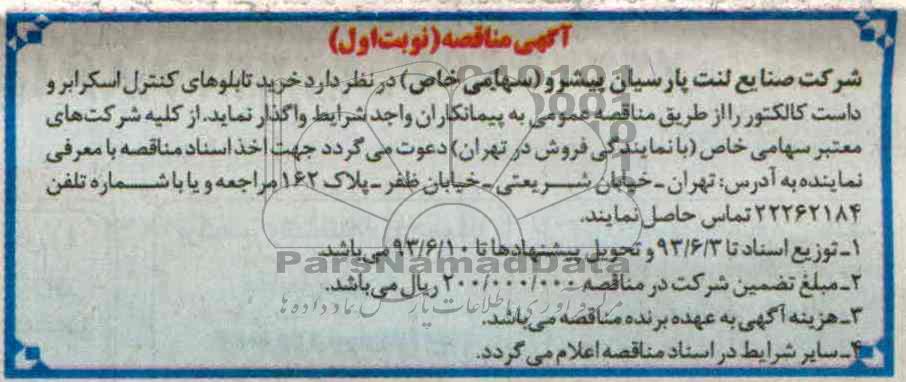 آگهی مناقصه (نوبت اول)
شرکت صنایع لنت پارسیان پیشرو (سهامی خاص) در نظر دارد خرید تابلوهای کنترل اسکرابر و
داست کالکتور را از طریق مناقصه عمومی به پیمانکاران واجد شرایط واگذار نماید. از کلیه شرکت‌های
معتبر سهامی خاص (با نمایندگی فروش در تهران) دعوت می‌گردد جهت اخذ اسناد مناقصه با معرفی
نماینده به آدرس: تهران ـ خیابان شریعتی ـ خیابان ظفر ـ پلاک ۱۶۲ مراجعه و یا با شماره تلفن
۲۲۲۶۲۱۸۴ تماس حاصل نمایند.
۱ـ توزیع اسناد تا ۹۳/۶/۳ و تحویل پیشنهادها تا ۹۳/۶/۱۰ می‌باشد.
ParsNamadData
۲ـ مبلغ تضمین شرکت در مناقصه ۲۰۰/۰۰۰/۰۰۰ ریال می‌باشد.
۳ـ هزینه آگهی به عهده برنده مناقصه می‌باشد.
۴ـ سایر شرایط در اسناد مناقصه اعلام می‌گردد.